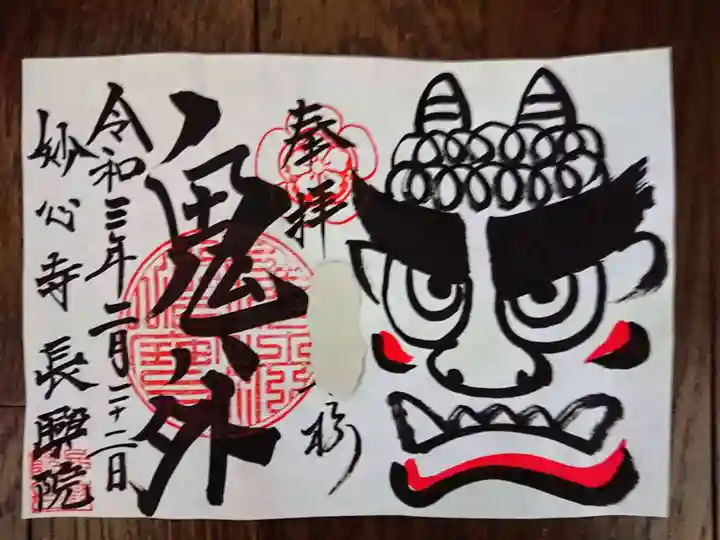 奉拝
鬼ハ外
令和三年二月二十二日
妙心寺長興院